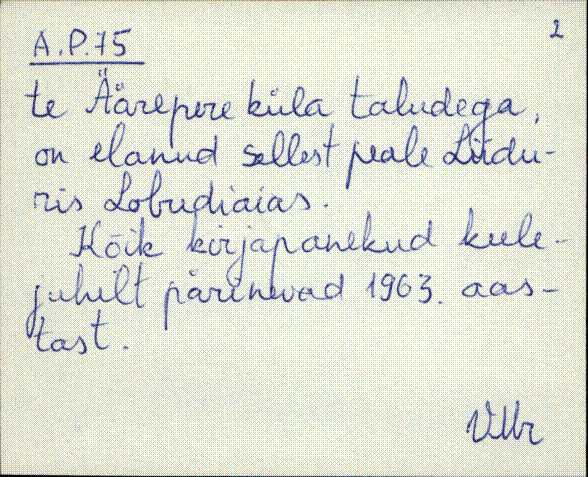 2
A.P.75
te Äärepere küla taludega,
on elanud sellest peale Lüdu-
ris Lobudiaias.
Kõik kirjapanekud keele-
juhilt pärinevad 1963. aas-
tast.